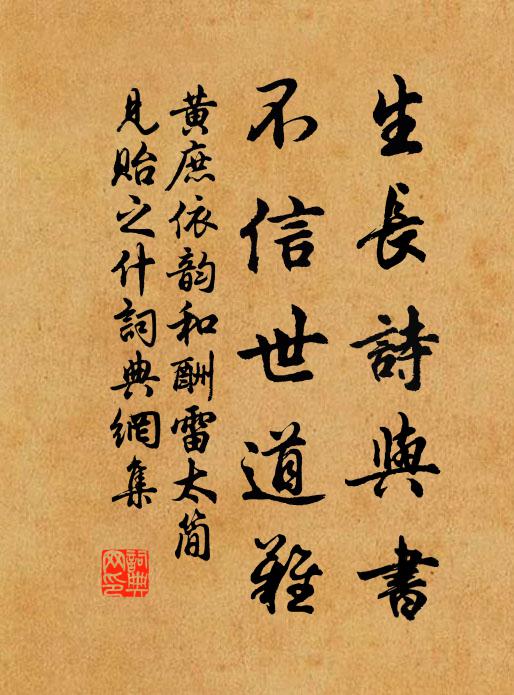 生長詩與書
不信世道難
黃庶依韵和酬雷太簡
見貽之什詞典網集
詞典網印